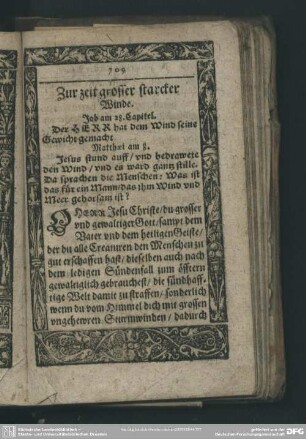 708
Zur zeit grosser starcker
Winde.
Job am 28. Capitel.
Der HERR hat dem Wind seine
Gewicht gemacht
Matthei am 8.
Jesus stund auff/ vnd bedrawete
den Wind/ vnd es ward gantz stille.
Da sprachen die Menschen: Was ist
das für ein Mann/ das ihm Wind vnd
Meer gehorsam ist?
O HErr Jesu Christe/ du grosser
vnd gewaltiger Gott/ sampt dem
Vater vnd dem heiligen Geiste/
der du alle Creaturen den Menschen zu
gut erschaffen hast/ dieselben auch nach
dem leidigen Sündenfall zum öfftern
gewaltiglich gebrauchest/ die sündhaff-
tige Welt damit zu straffen/ sonderlich
wenn du vom Himmel dich mit grossen
vngehewren Sturmwinden/ dadurch